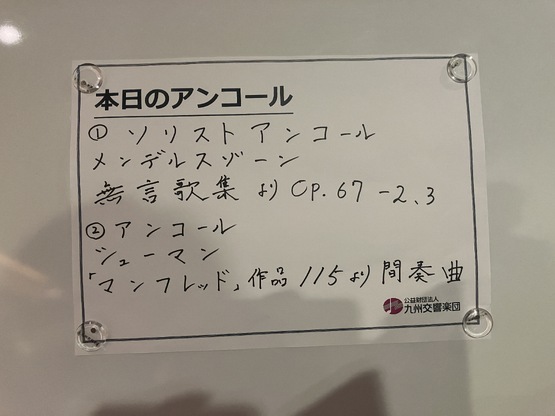 本日のアンコール
① ソリストアンコール
メンデルスゾーン
無言歌集 より Op.67-2、3
② アンコール
シューマン
「マンフレッド」作品115より 間奏曲
公益財団法人
九州交響楽団